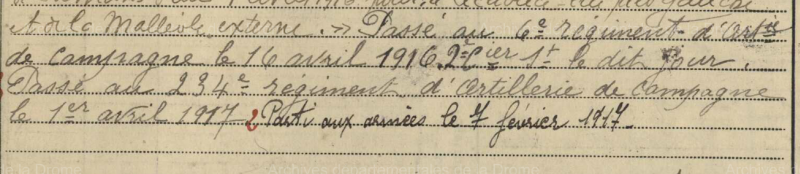 et de la Malléole externe. » Passé au 6e régiment d'Artie
de campagne le 16 avril 1916. 2e Cier St le dit jour.
Passé au 234e régiment d'Artillerie de campagne
le 1er avril 1917. Parti aux armées le 7 février 1917.